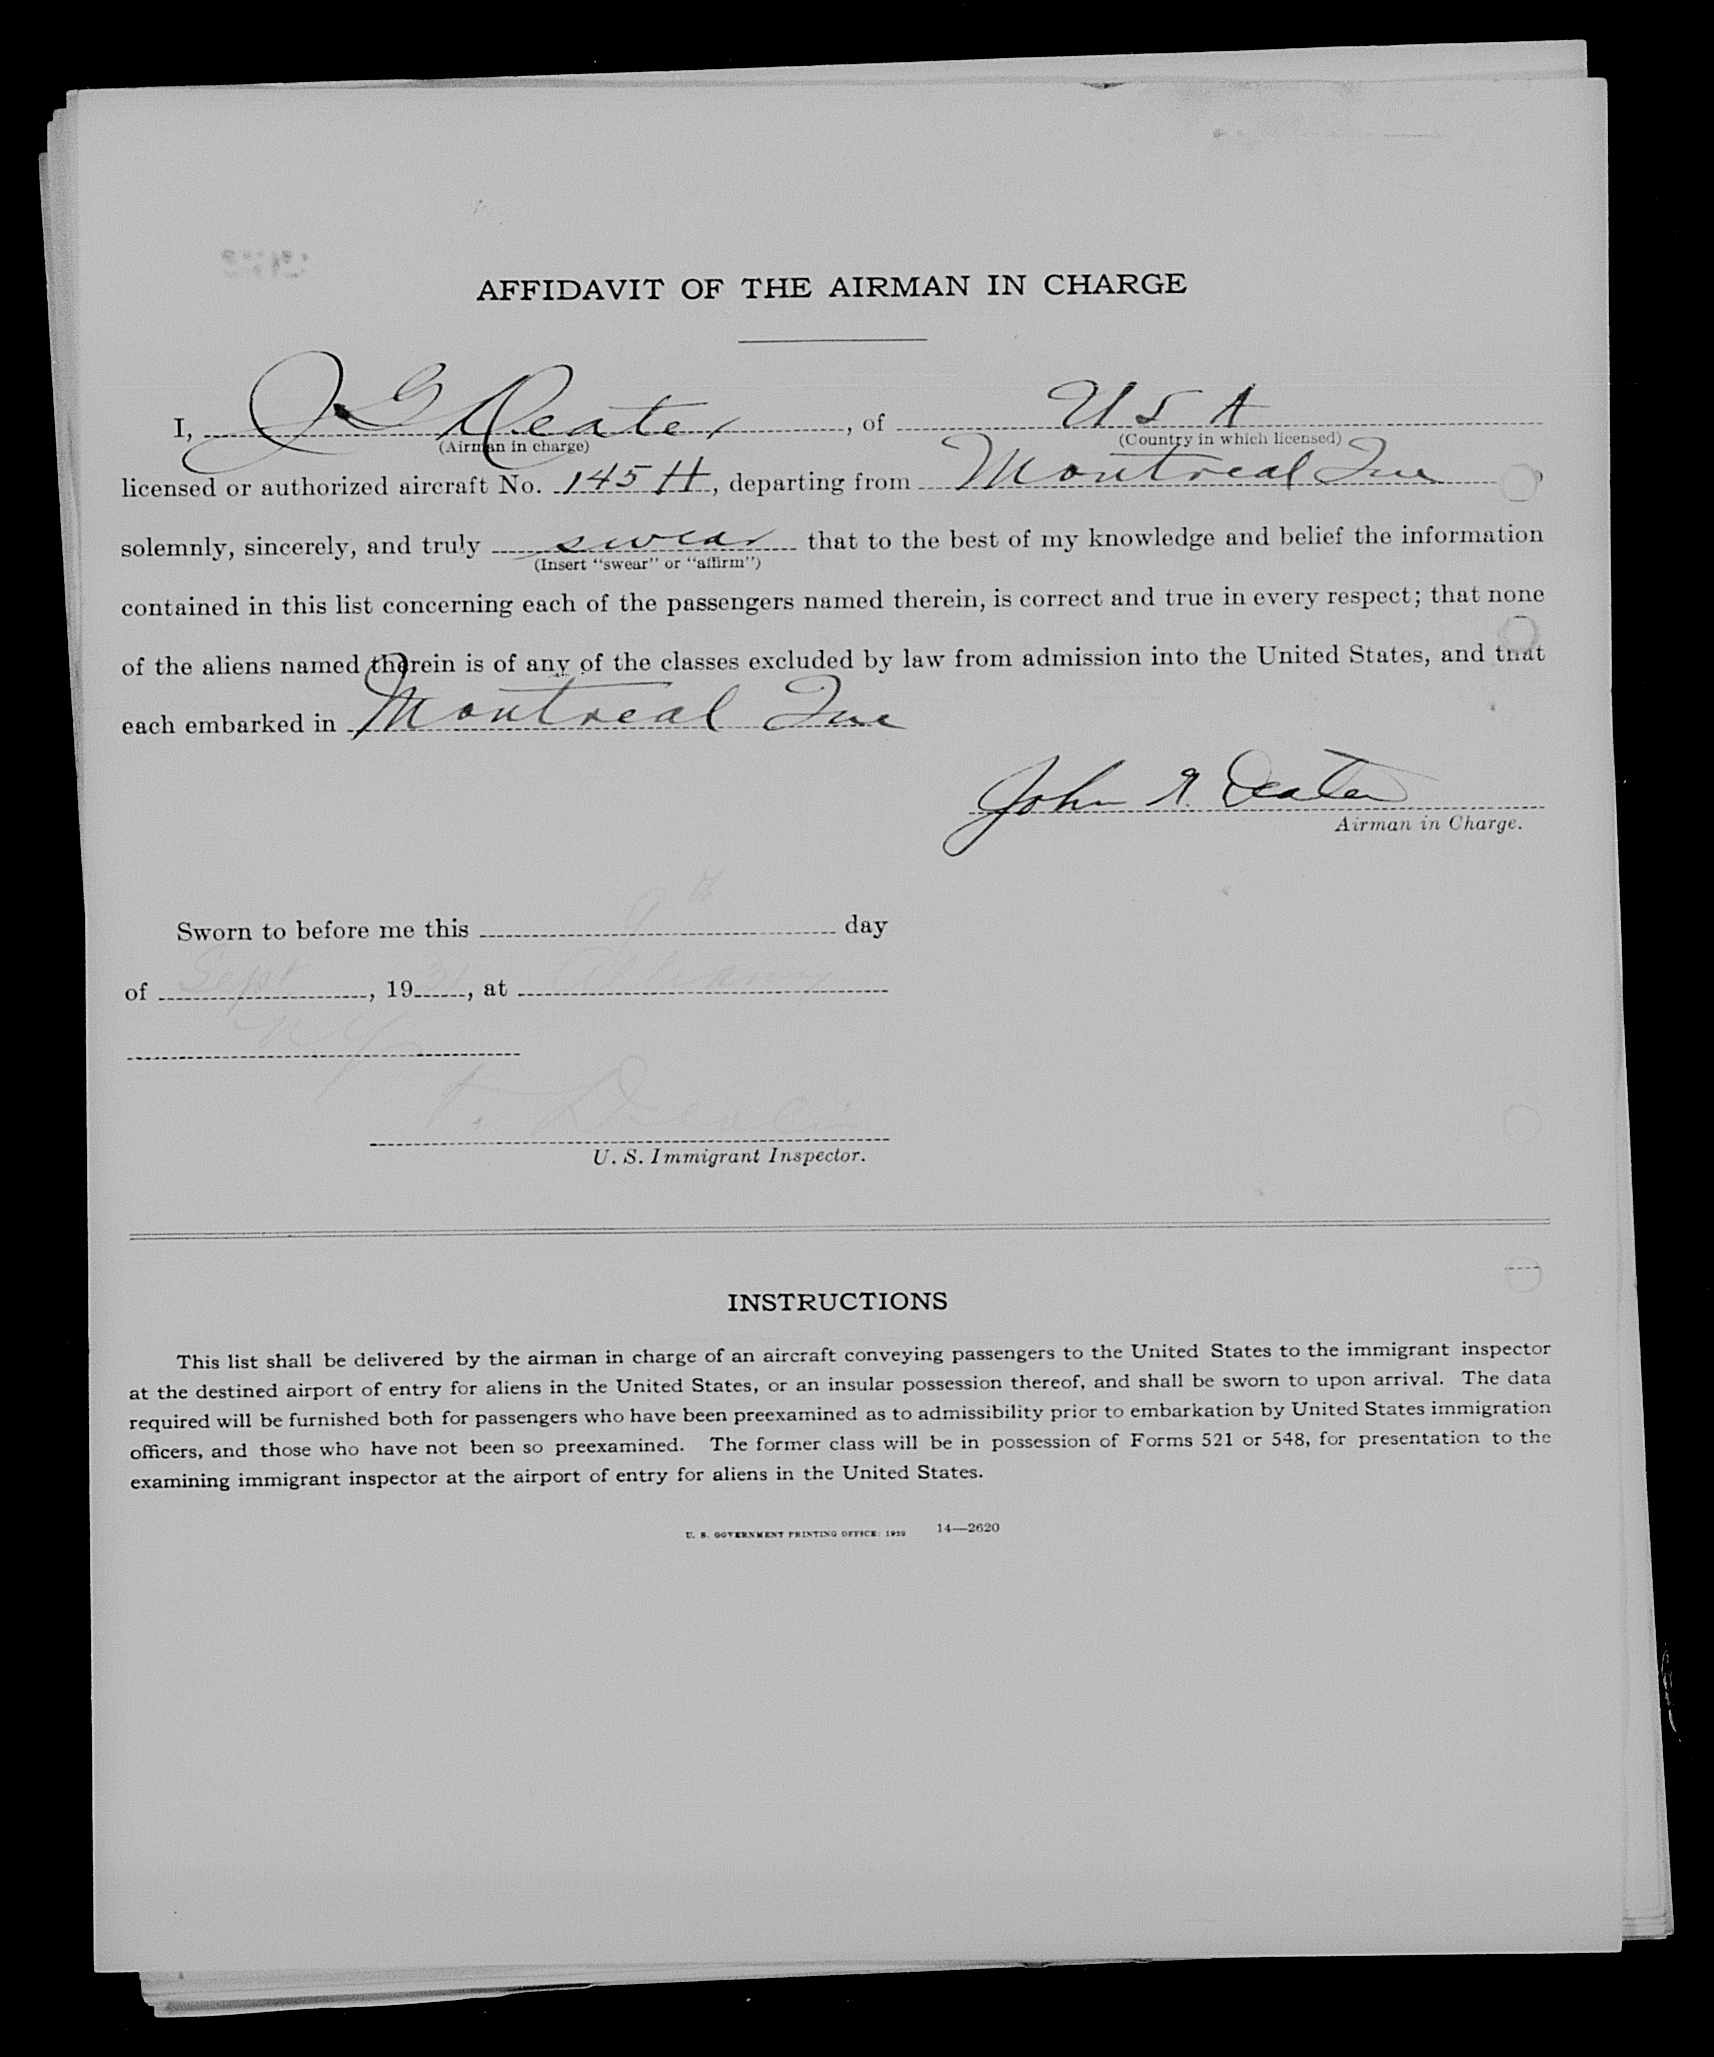 AFFIDAVIT OF THE AIRMAN IN CHARGE
I, J G Deater, of U S A
(Airman in charge) (Country in which licensed)
licensed or authorized aircraft No. 145H, departing from Montreal Que,
solemnly, sincerely, and truly swear that to the best of my knowledge and belief the information
(Insert "swear" or "affirm")
contained in this list concerning each of the passengers named therein, is correct and true in every respect; that none
of the aliens named therein is of any of the classes excluded by law from admission into the United States, and that
each embarked in Montreal Que
John G. Deater
Airman in Charge.
Sworn to before me this 9th day
of Sept, 1931, at Albany
N Y
U. S. Immigrant Inspector.
INSTRUCTIONS
This list shall be delivered by the airman in charge of an aircraft conveying passengers to the United States to the immigrant inspector
at the destined airport of entry for aliens in the United States, or an insular possession thereof, and shall be sworn to upon arrival. The data
required will be furnished both for passengers who have been preexamined as to admissibility prior to embarkation by United States immigration
officers, and those who have not been so preexamined. The former class will be in possession of Forms 521 or 548, for presentation to the
examining immigrant inspector at the airport of entry for aliens in the United States.
U. S. GOVERNMENT PRINTING OFFICE: 1929 14—2620